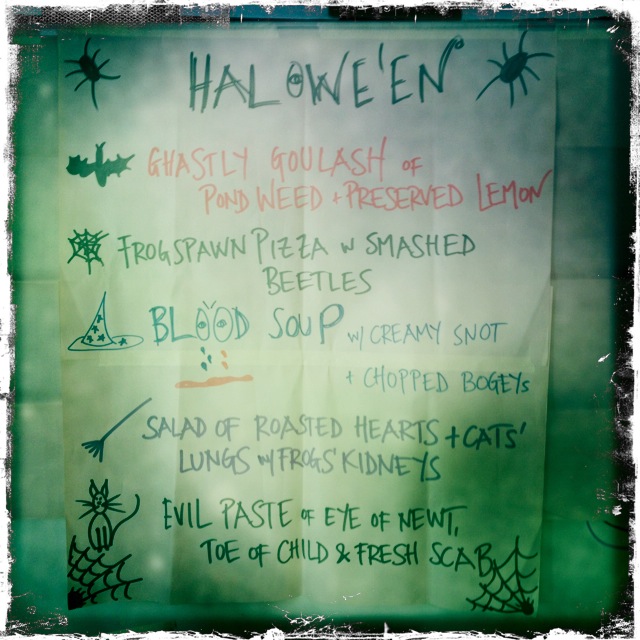 HALOWE'EN
GHASTLY GOULASH OF
POND WEED + PRESERVED LEMON
FROGSPAWN PIZZA W SMASHED
BEETLES
BLOOD SOUP W/ CREAMY SNOT
+ CHOPPED BOGEYS
SALAD OF ROASTED HEARTS + CATS'
LUNGS W/ FROGS' KIDNEYS
EVIL PASTE OF EYE OF NEWT,
TOE OF CHILD & FRESH SCAB